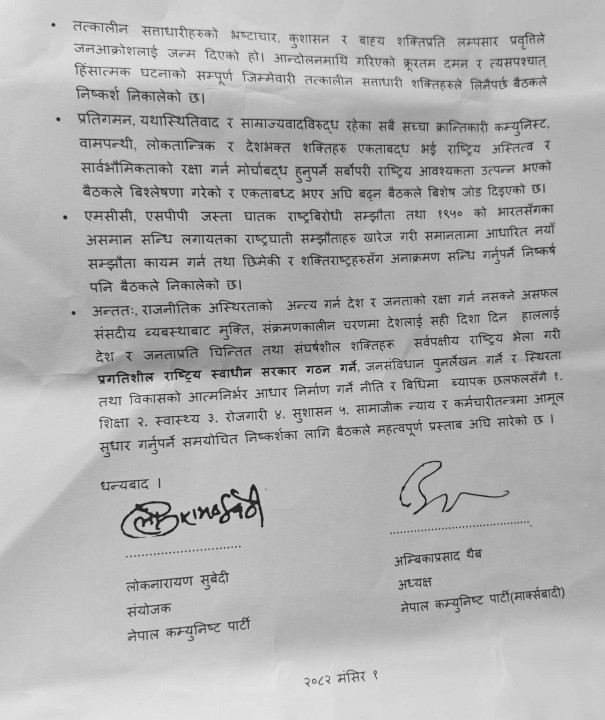 • तत्कालीन सत्ताधारीहरुको भ्रष्टाचार, कुशासन र बाह्य शक्तिप्रति लम्पसार प्रवृतिले
जनआक्रोशलाई जन्म दिएको हो। आन्दोलनमाथि गरिएको क्रूरतम दमन र त्यसपश्चात्
हिंसात्मक घटनाको सम्पूर्ण जिम्मेवारी तत्कालीन सत्ताधारी शक्तिहरुले लिनैपर्छ बैठकले
निष्कर्श निकालेको छ।
• प्रतिगमन, यथास्थितिवाद र सामाज्यवादविरुद्ध रहेका सबै सच्चा क्रान्तिकारी कम्युनिस्ट,
वामपन्थी, लोकतान्त्रिक र देशभक्त शक्तिहरु एकताबद्ध भई राष्ट्रिय अस्तित्व र
सार्वभौमिकताको रक्षा गर्न मोर्चाबद्ध हुनुपर्ने सर्वोपरी राष्ट्रिय आवश्यकता उत्पन्न भएको
बैठकले बिश्लेषणा गरेको र एकताबध्द भएर अघि बढ्न बैठकले बिशेष जोड दिइएको छ।
• एमसीसी, एसपीपी जस्ता घातक राष्ट्रबिरोधी सम्झौता तथा १९५० को भारतसँगका
असमान सन्धि लगायतका राष्ट्रघाती सम्झौताहरु खारेज गरी समानतामा आधारित नयाँ
सम्झौता कायम गर्न तथा छिमेकी र शक्तिराष्ट्रहरुसँग अनाक्रमण सन्धि गर्नुपर्ने निष्कर्ष
पनि बैठकले निकालेको छ।
• अन्ततः, राजनीतिक अस्थिरताको अन्त्य गर्न देश र जनताको रक्षा गर्न नसक्ने असफल
संसदीय ब्यबस्थाबाट मुक्ति, संक्रमणकालीन चरणमा देशलाई सही दिशा दिन हाललाई
देश र जनताप्रति चिन्तित तथा संघर्षशील शक्तिहरु सर्वपक्षीय राष्ट्रिय भेला गरी
प्रगतिशील राष्ट्रिय स्वाधीन सरकार गठन गर्ने, जनसंविधान पुनर्लेखन गर्ने र स्थिरता
तथा विकासको आत्मनिर्भर आधार निर्माण गर्ने नीति र बिधिमा ब्यापक छलफलसँगै १.
शिक्षा २. स्वास्थ्य ३. रोजगारी ४. सुशासन ५. सामाजीक न्याय र कर्मचारीतन्त्रमा आमूल
सुधार गर्नुपर्ने समयोचित निष्कर्शका लागि बैठकले महत्वपूर्ण प्रस्ताब अघि सारेको छ ।
धन्यबाद ।
..............................
लोकनारायण सुबेदी
संयोजक
नेपाल कम्युनिष्ट पार्टी
..............................
अम्बिकाप्रसाद थैब
अध्यक्ष
नेपाल कम्युनिष्ट पार्टी(मार्क्सबादी)
२०८२ मंसिर १